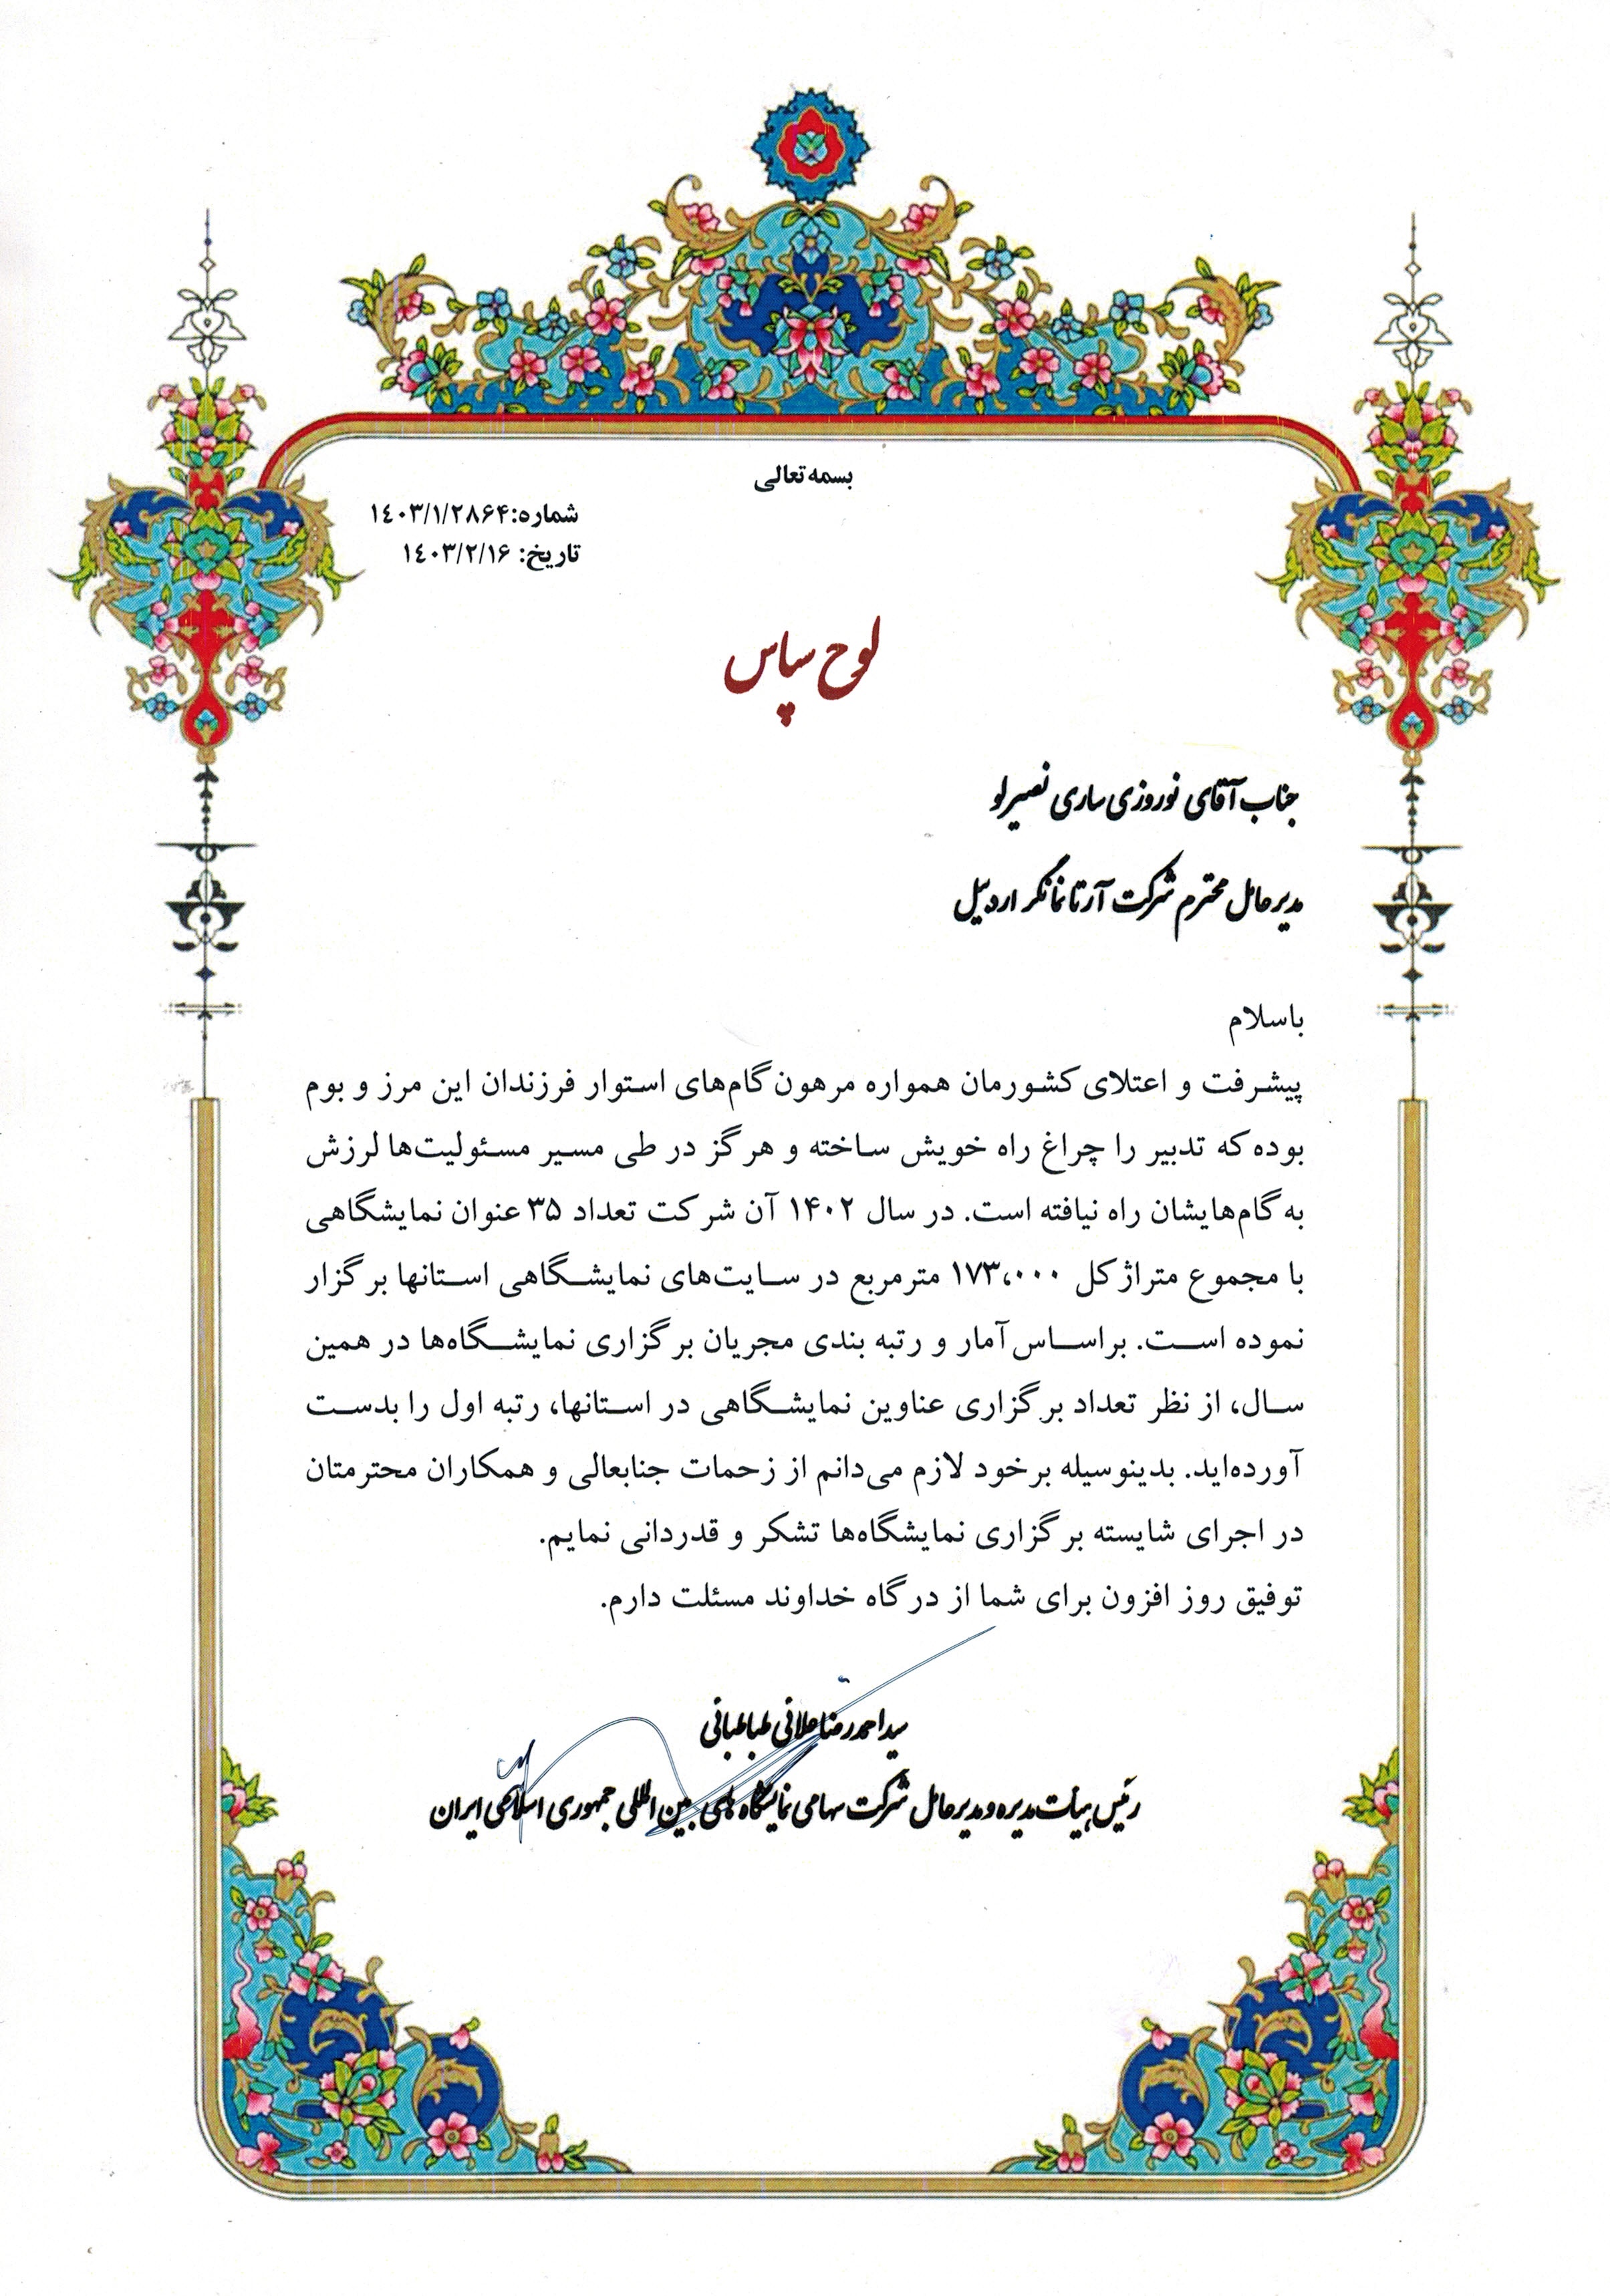 بسمه تعالی
شماره:۱٤۰۳/۱/۲۸۶۴
تاریخ: ۱٤۰۳/۲/۱۶
لوح سپاس
جناب آقای نوروزی ساری نصیرلو
مدیرعامل محترم شرکت آرتا نمانگر اردبیل
باسلام
پیشرفت و اعتلای کشورمان همواره مرهون گام‌های استوار فرزندان این مرز و بوم
بوده که تدبیر را چراغ راه خویش ساخته و هرگز در طی مسیر مسئولیت‌ها لرزش
به گام‌هایشان راه نیافته است. در سال ۱۴۰۲ آن شرکت تعداد ۳۵ عنوان نمایشگاهی
با مجموع متراژ کل ۱۷۳،۰۰۰ مترمربع در سایت‌های نمایشگاهی استانها برگزار
نموده است. براساس آمار و رتبه بندی مجریان برگزاری نمایشگاه‌ها در همین
سال، از نظر تعداد برگزاری عناوین نمایشگاهی در استانها، رتبه اول را بدست
آورده‌اید. بدینوسیله برخود لازم می‌دانم از زحمات جنابعالی و همکاران محترمتان
در اجرای شایسته برگزاری نمایشگاه‌ها تشکر و قدردانی نمایم.
توفیق روز افزون برای شما از درگاه خداوند مسئلت دارم.
سید احمدرضا علائی طباطبائی
رئیس هیأت مدیره و مدیرعامل شرکت سهامی نمایشگاه های بین المللی جمهوری اسلامی ایران